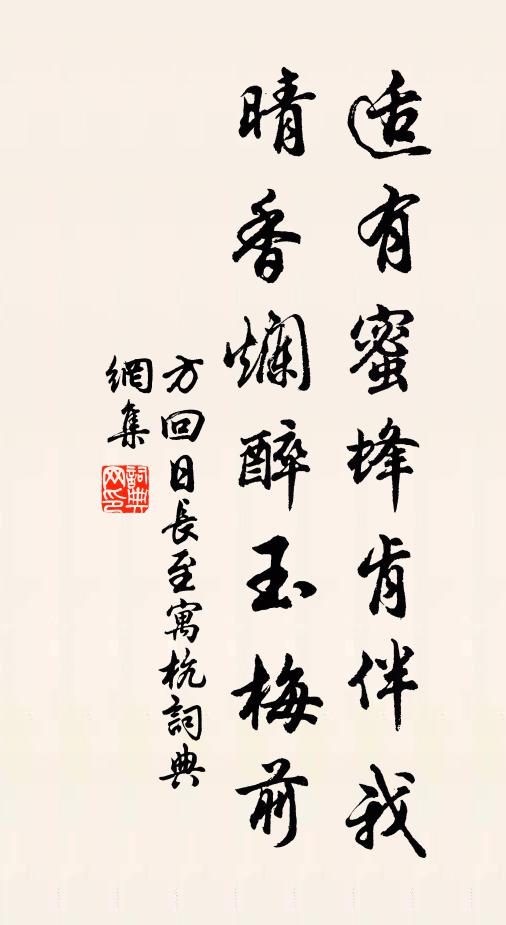 适有蜜蜂肯伴我
晴香爛醉玉梅前
方回日長至寓杭詞典
網集
詞典網印